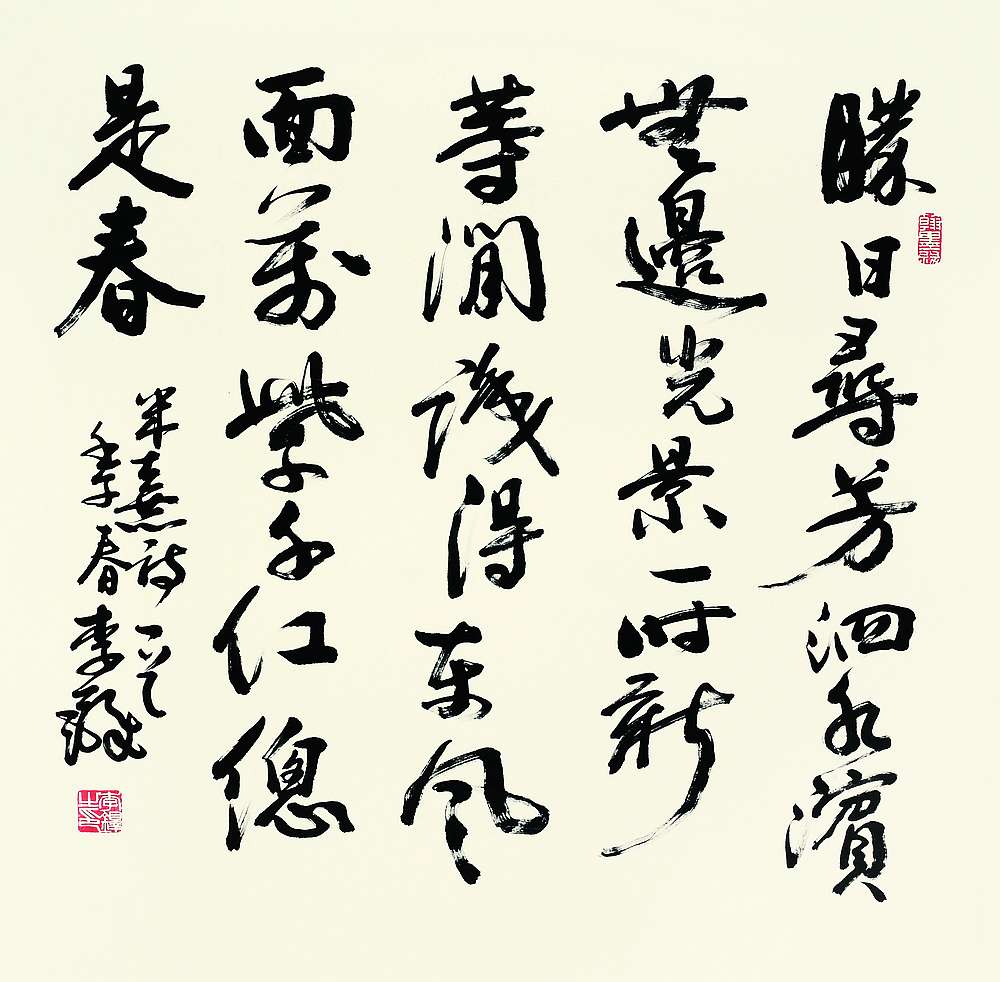 勝日尋芳泗水濱
無邊光景一時新
等閒識得東風
面萬紫千紅總
是春
朱熹詩一首
春李